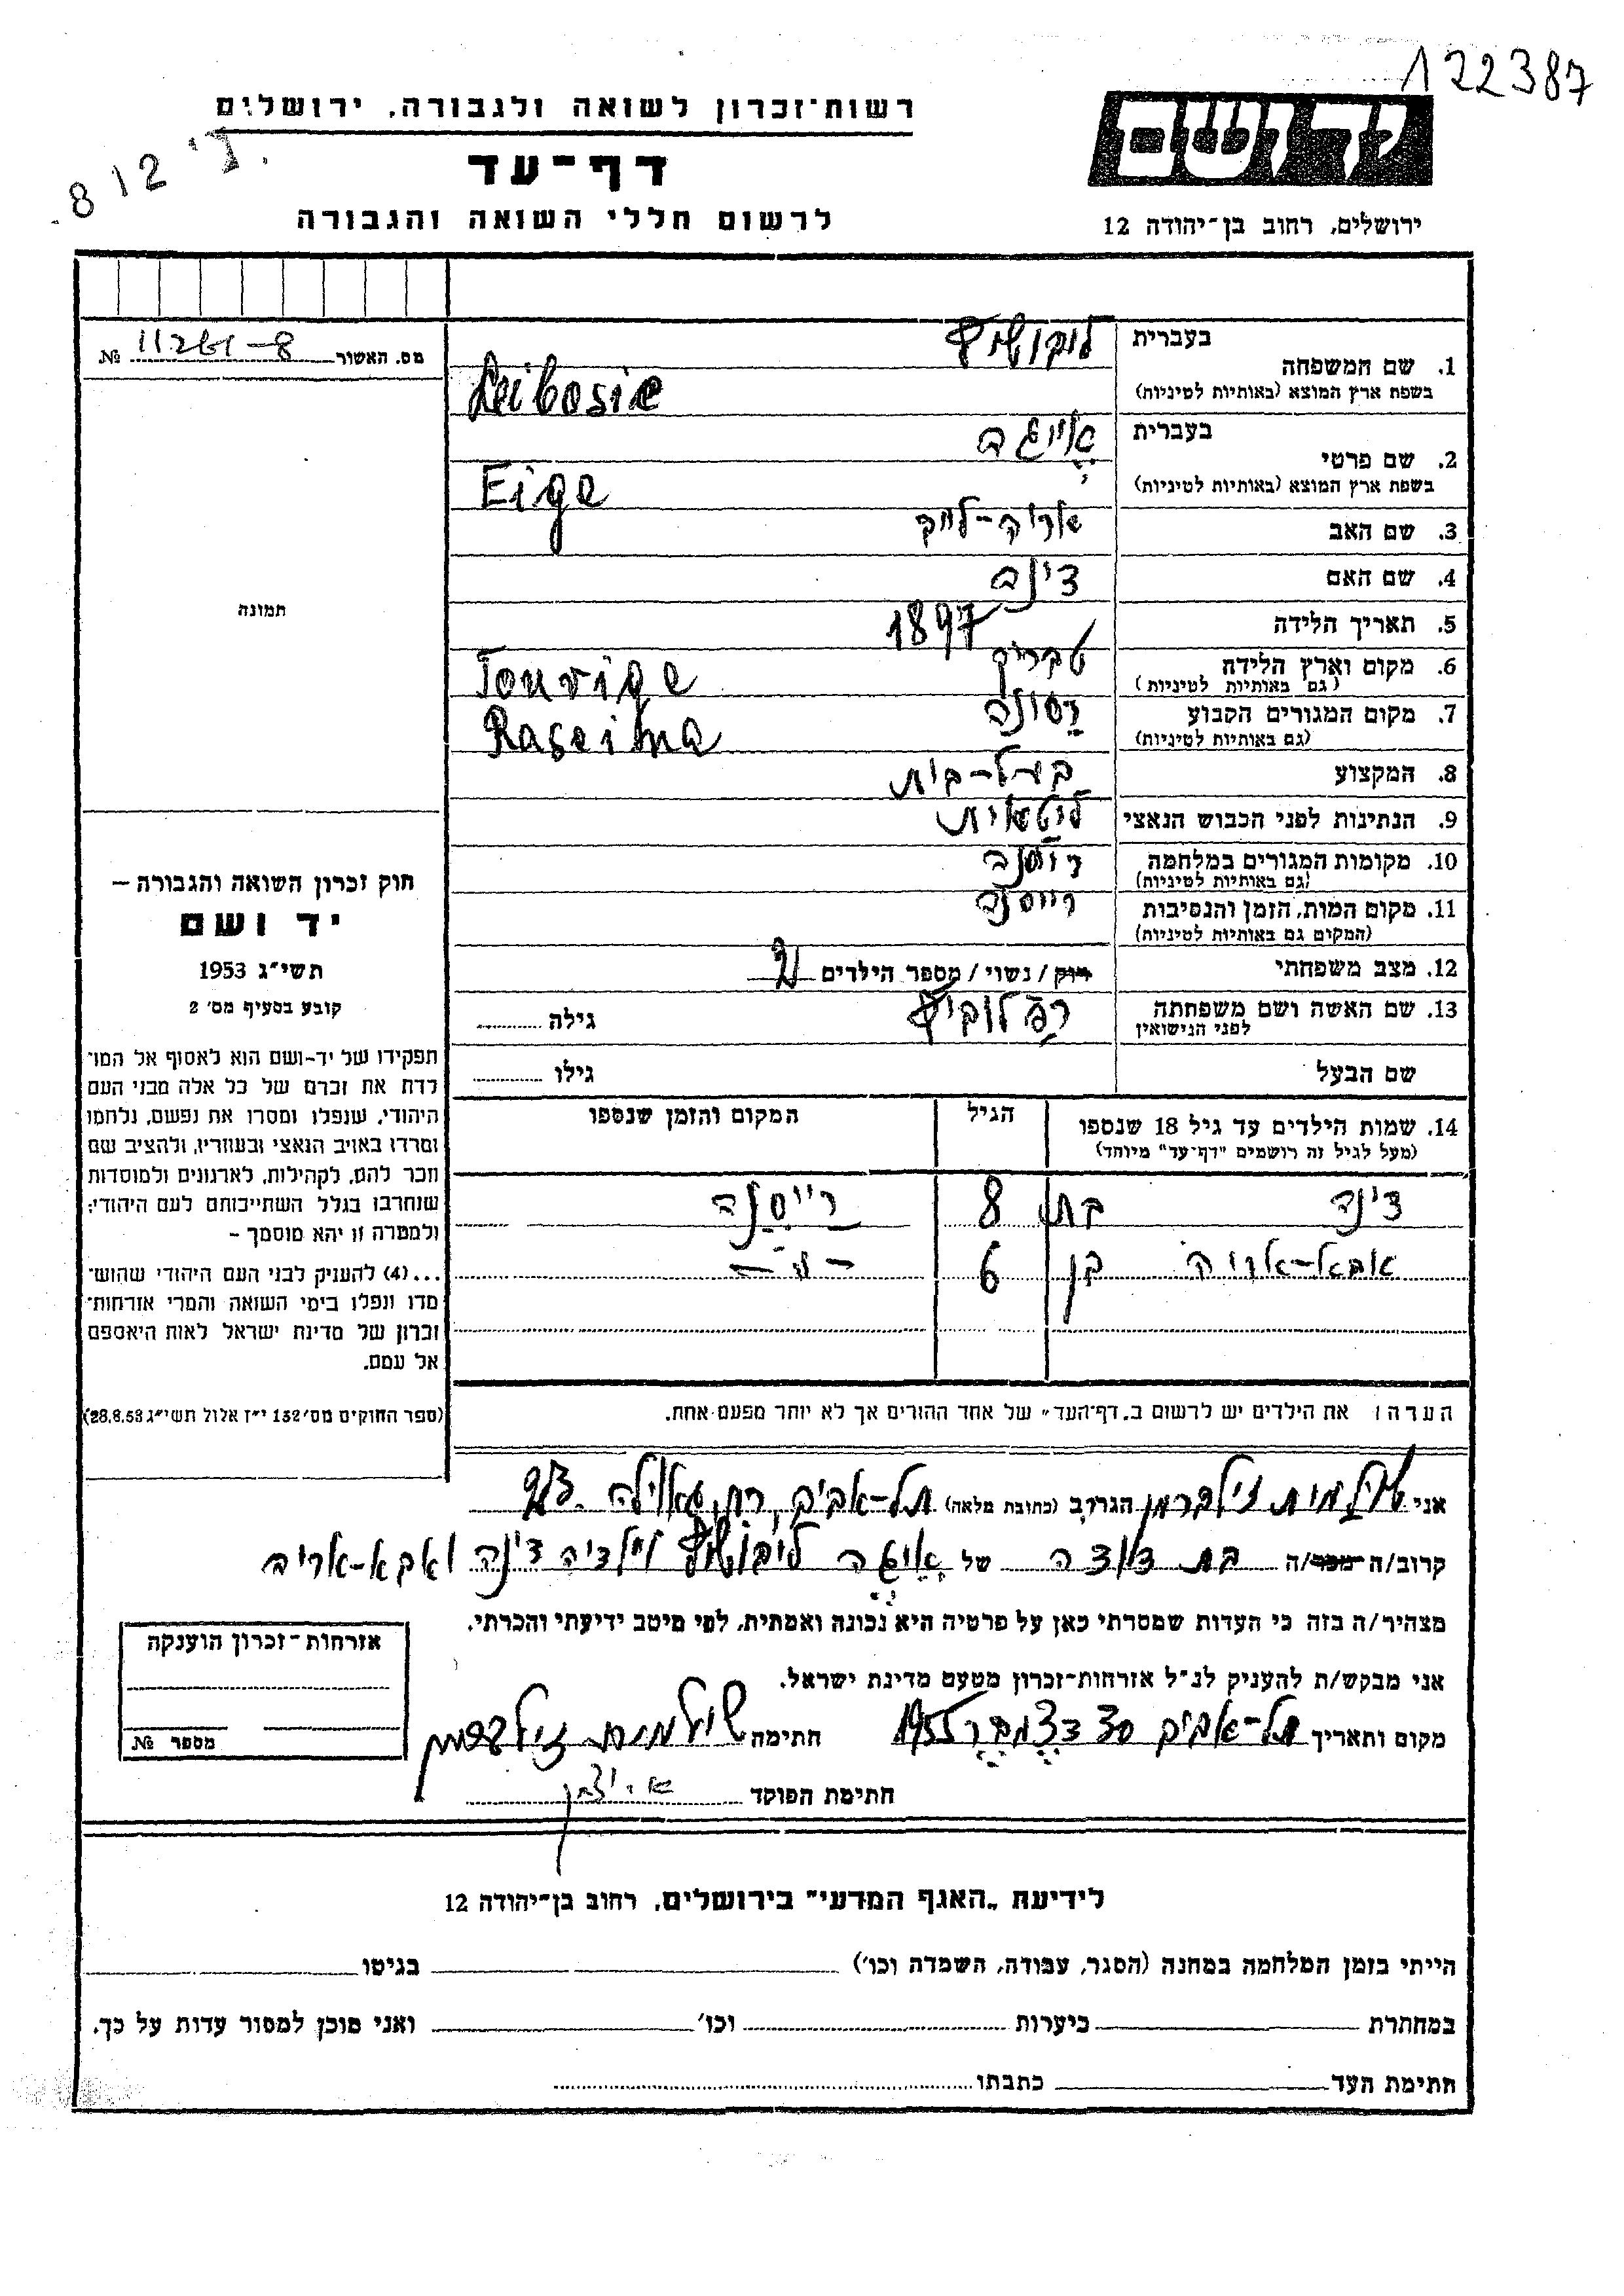 122387
רשות־זכרון לשואה ולגבורה, ירושלים
דף־עד
לרשום חללי השואה והגבורה
ידושם
ירושלים, רחוב בן־יהודה 12
812
מס. האשור № 8
1. שם המשפחה
בעברית
בשפת ארץ המוצא (באותיות לטיניות) Leibosic
2. שם פרטי
בעברית אייגה
בשפת ארץ המוצא (באותיות לטיניות) Eige
3. שם האב אריה-לייב
4. שם האם דינה
5. תאריך הלידה 1897
6. מקום וארץ הלידה טבריג
(גם באותיות לטיניות) Touvige
7. מקום המגורים הקבוע
(גם באותיות לטיניות) Raseina
8. המקצוע בעל-בית
9. הנתינות לפני הכבוש הנאצי ליטאית
10. מקומות המגורים במלחמה רייסנה
(גם באותיות לטיניות)
11. מקום המות, הזמן והנסיבות רייסנה
(המקום גם באותיות לטיניות)
12. מצב משפחתי רוק / נשוי / מספר הילדים 2
13. שם האשה ושם משפחתה
לפני הנישואין
גילה
שם הבעל גילו
14. שמות הילדים עד גיל 18 שנספו
(מעל לגיל זה רושמים "דף־עד" מיוחד)
הגיל
המקום והזמן שנספו
דינה בת 8 רייסנה
אבא-אריה בן 6 -"-
הערה: את הילדים יש לרשום ב„דף־העד" של אחד ההורים אך לא יותר מפעם אחת.
תמונה
חוק זכרון השואה והגבורה –
יד ושם
תשי"ג 1953
קובע בסעיף מס' 2
תפקידו של יד-ושם הוא לאסוף אל המו־
לדת את זכרם של כל אלה מבני העם
היהודי, שנפלו ומסרו את נפשם, נלחמו
ומרדו באויב הנאצי ובעוזריו, ולהציב שם
וזכר להם, לקהילות, לארגונים ולמוסדות
שנחרבו בגלל השתייכותם לעם היהודי;
ולמטרה זו יהא מוסמך –
...(4) להעניק לבני העם היהודי שהוש־
מדו ונפלו בימי השואה והמרי אזרחות־
זכרון של מדינת ישראל לאות היאספם
אל עמם.
(ספר החוקים מס' 132 י"ז אלול תשי"ג 28.8.53)
אני שולמית זילברמן הגר/ה ב (כתובת מלאה) תל-אביב, רח'
קרוב/ה מכר/ה בת דודה של אייגה וילדיה דינה ואבא-אריה
מצהיר/ה בזה כי העדות שמסרתי כאן על פרטיה היא נכונה ואמתית, לפי מיטב ידיעתי והכרתי.
אני מבקש/ת להעניק לנ"ל אזרחות־זכרון מטעם מדינת ישראל.
מקום ותאריך תל-אביב 30 דצמבר 1955 חתימה שולמית זילברמן
חתימת הפוקד
אזרחות־זכרון הוענקה
מספר №
לידיעת „האגף המדעי" בירושלים, רחוב בן־יהודה 12
הייתי בזמן המלחמה במחנה (הסגר, עבודה, השמדה וכו') בגיטו
במחתרת ביערות וכו' ואני מוכן למסור עדות על כך.
חתימת העד כתבתו